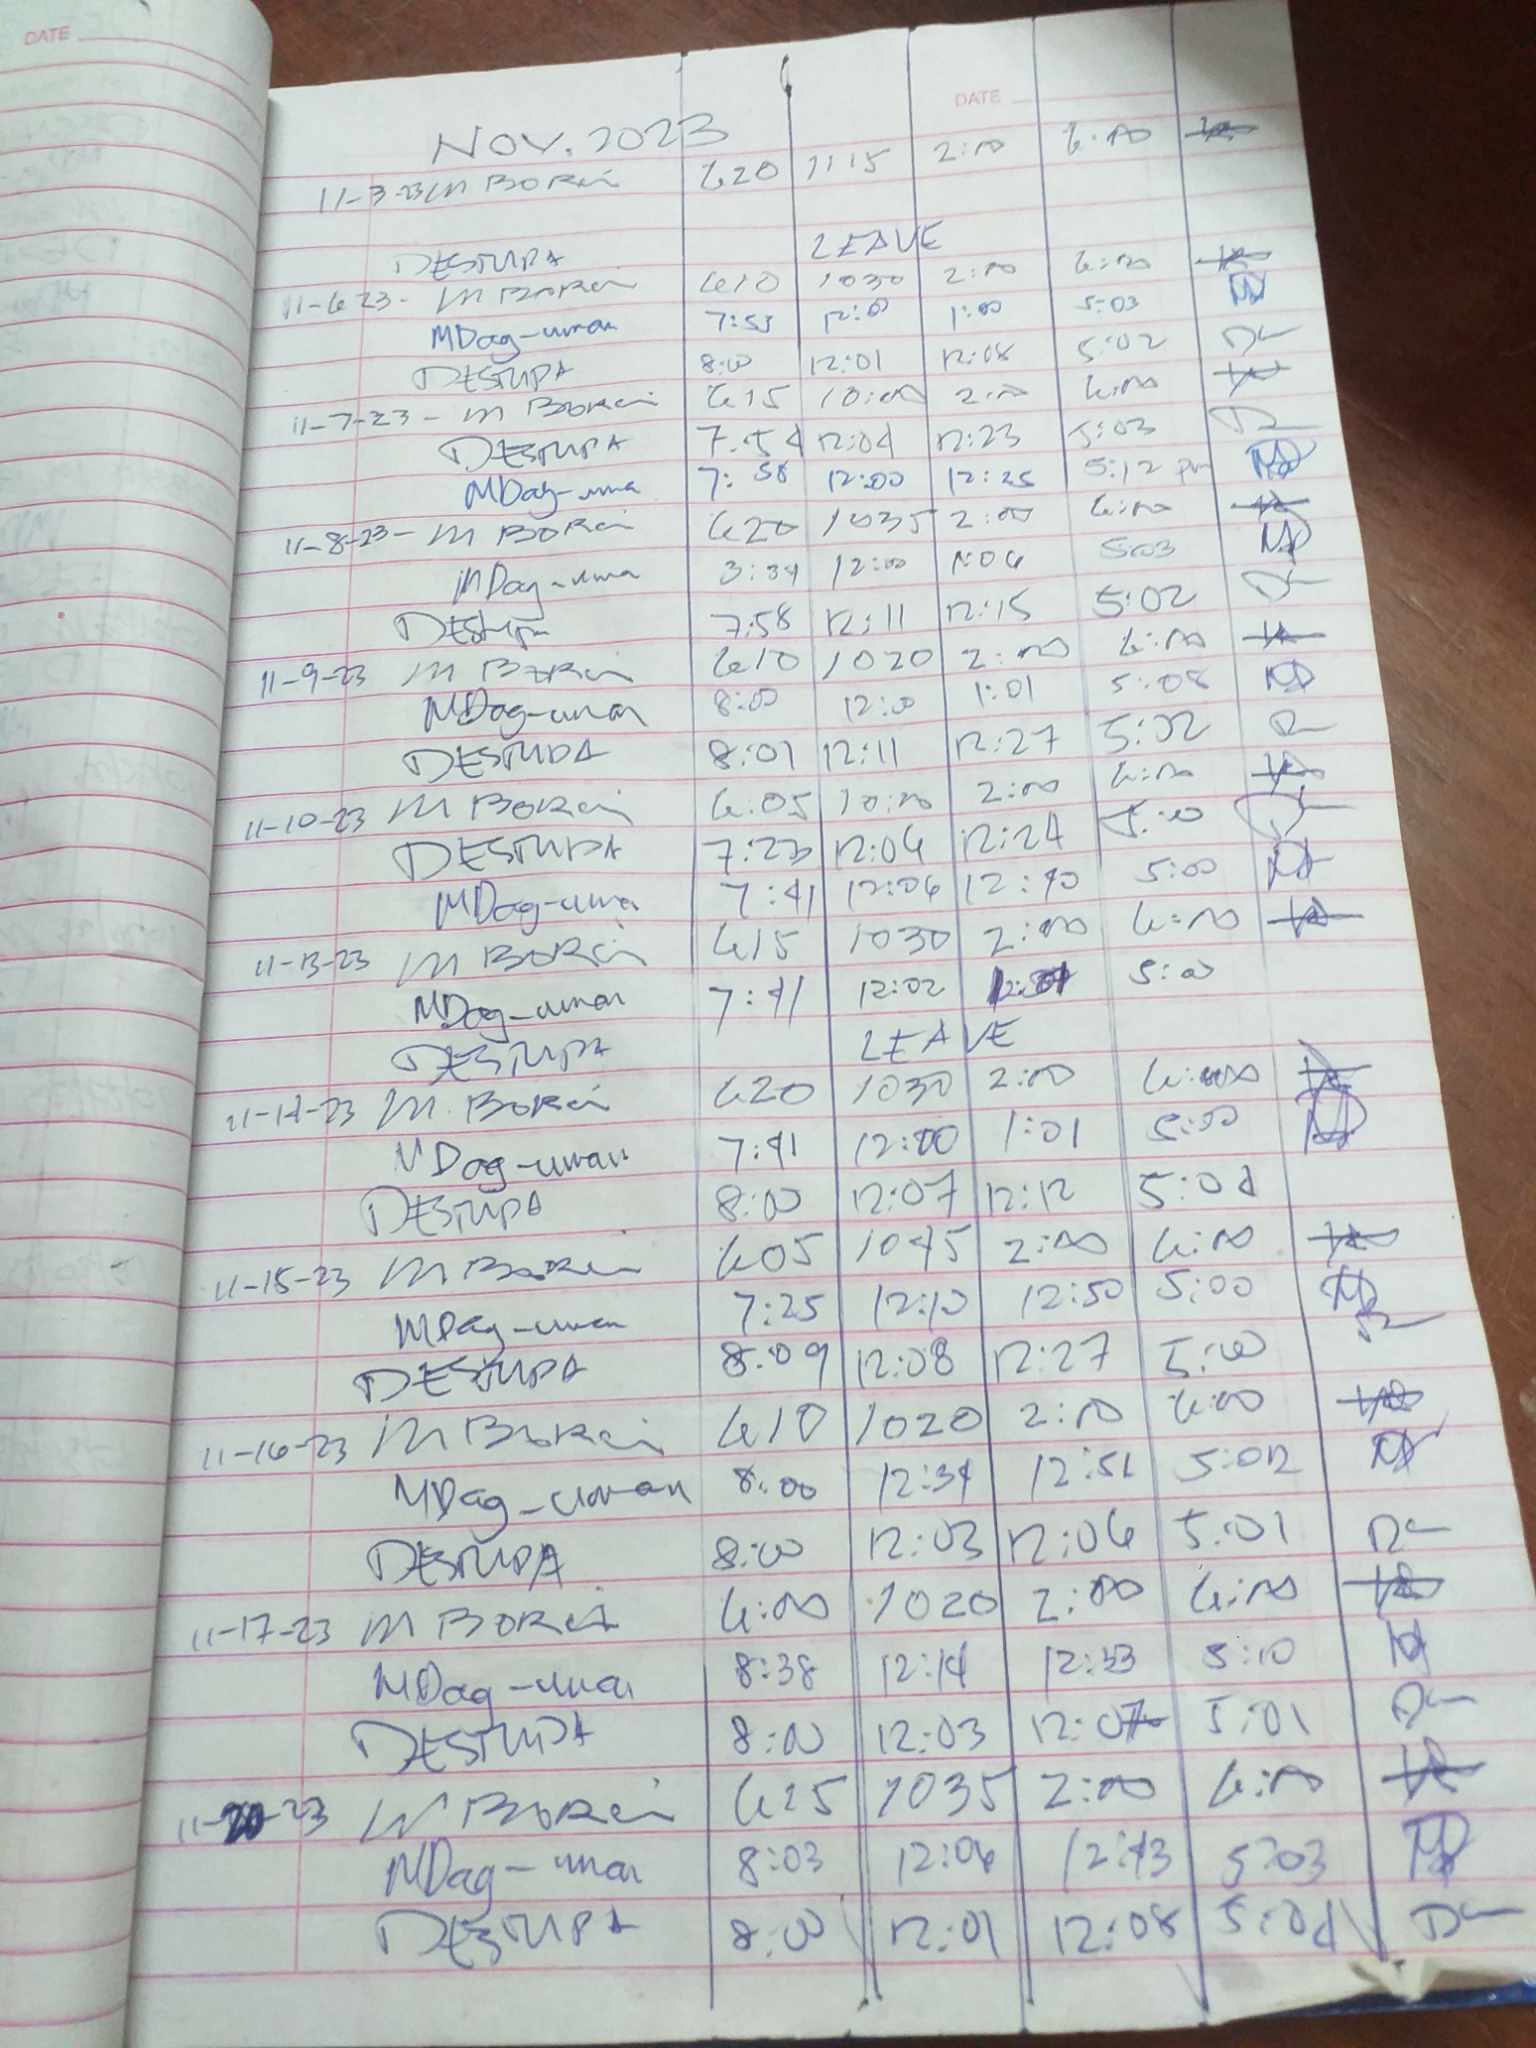 DATE
DATE
NOV. 2023
11-3-23 M Borci 620 1115 2:00 6:00
DESTUPA LEAVE
11-6-23- M Borci 610 1030 2:00 6:00
MDag-uman 7:53 12:00 1:00 5:03
DESTUPA 8:00 12:01 12:08 5:02
11-7-23- M Borci 615 10:00 2:00 6:00
DESTUPA 7:54 12:04 12:23 5:03
MDag-uma 7:58 12:00 12:25 5:12 pm
11-8-23- M Borci 620 1035 2:00 6:00
MDag-uma 12:00 1:06 5:03
DEStupa 7:58 12:11 12:15 5:02
11-9-23 M Borci 610 1020 2:00 6:00
MDag-uman 8:00 12:00 1:01 5:08
DESTUPA 8:01 12:11 12:27 5:02
11-10-23 M Borci 6:05 10:00 2:00 6:00
DESTUPA 7:23 12:06 12:24 5:00
MDag-uma 7:41 12:06 12:40 5:00
11-13-23 M Borci 615 1030 2:00 6:00
MDag-uman 7:41 12:02 5:00
DESTUPA LEAVE
11-14-23 M. Borci 620 1030 2:00 6:00
MDag-uman 7:41 12:00 1:01 5:00
DESTUPA 8:00 12:07 12:12 5:04
11-15-23 M Borci 605 1045 2:00 6:00
MDag-uman 7:25 12:10 12:50 5:00
DESTUPA 8:09 12:08 12:27 5:00
11-16-23 M Borci 610 1020 2:00 6:00
MDag-uman 8:00 12:34 12:51 5:02
DESTUPA 8:00 12:03 12:06 5:01
11-17-23 M Borci 6:00 1020 2:00 6:00
MDag-uman 8:38 12:14 12:33 5:10
DESTUPA 8:00 12:03 12:07 5:01
11-20-23 M Borci 625 1035 2:00 6:00
MDag-uman 8:03 12:06 12:43 5:03
DESTUPA 8:00 12:01 12:08 5:04